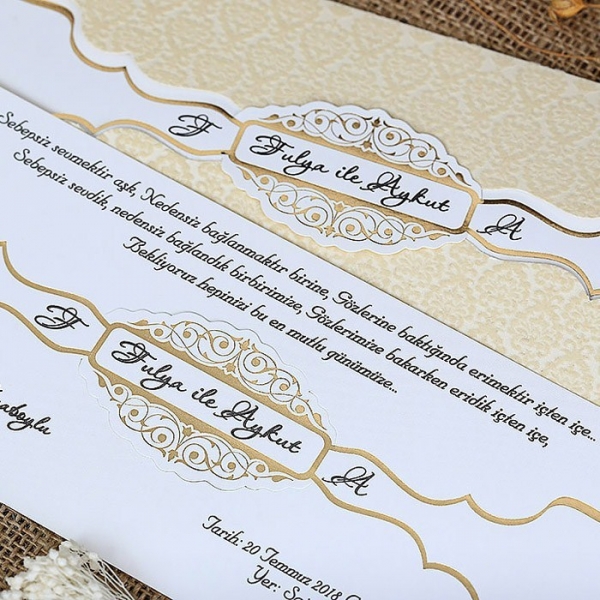 F
Fulya ile Aykut
A
Sebepsiz sevmektir aşk, Nedensiz bağlanmaktır birine, Gözlerine baktığında erimektir içten içe...
Sebepsiz sevdik, nedensiz bağlandık birbirimize, Gözlerimize bakarken eridik içten içe,
Bekliyoruz hepinizi bu en mutlu günümüze...
F
Fulya ile Aykut
A
Tarih: 20 Temmuz 2018
Yer: